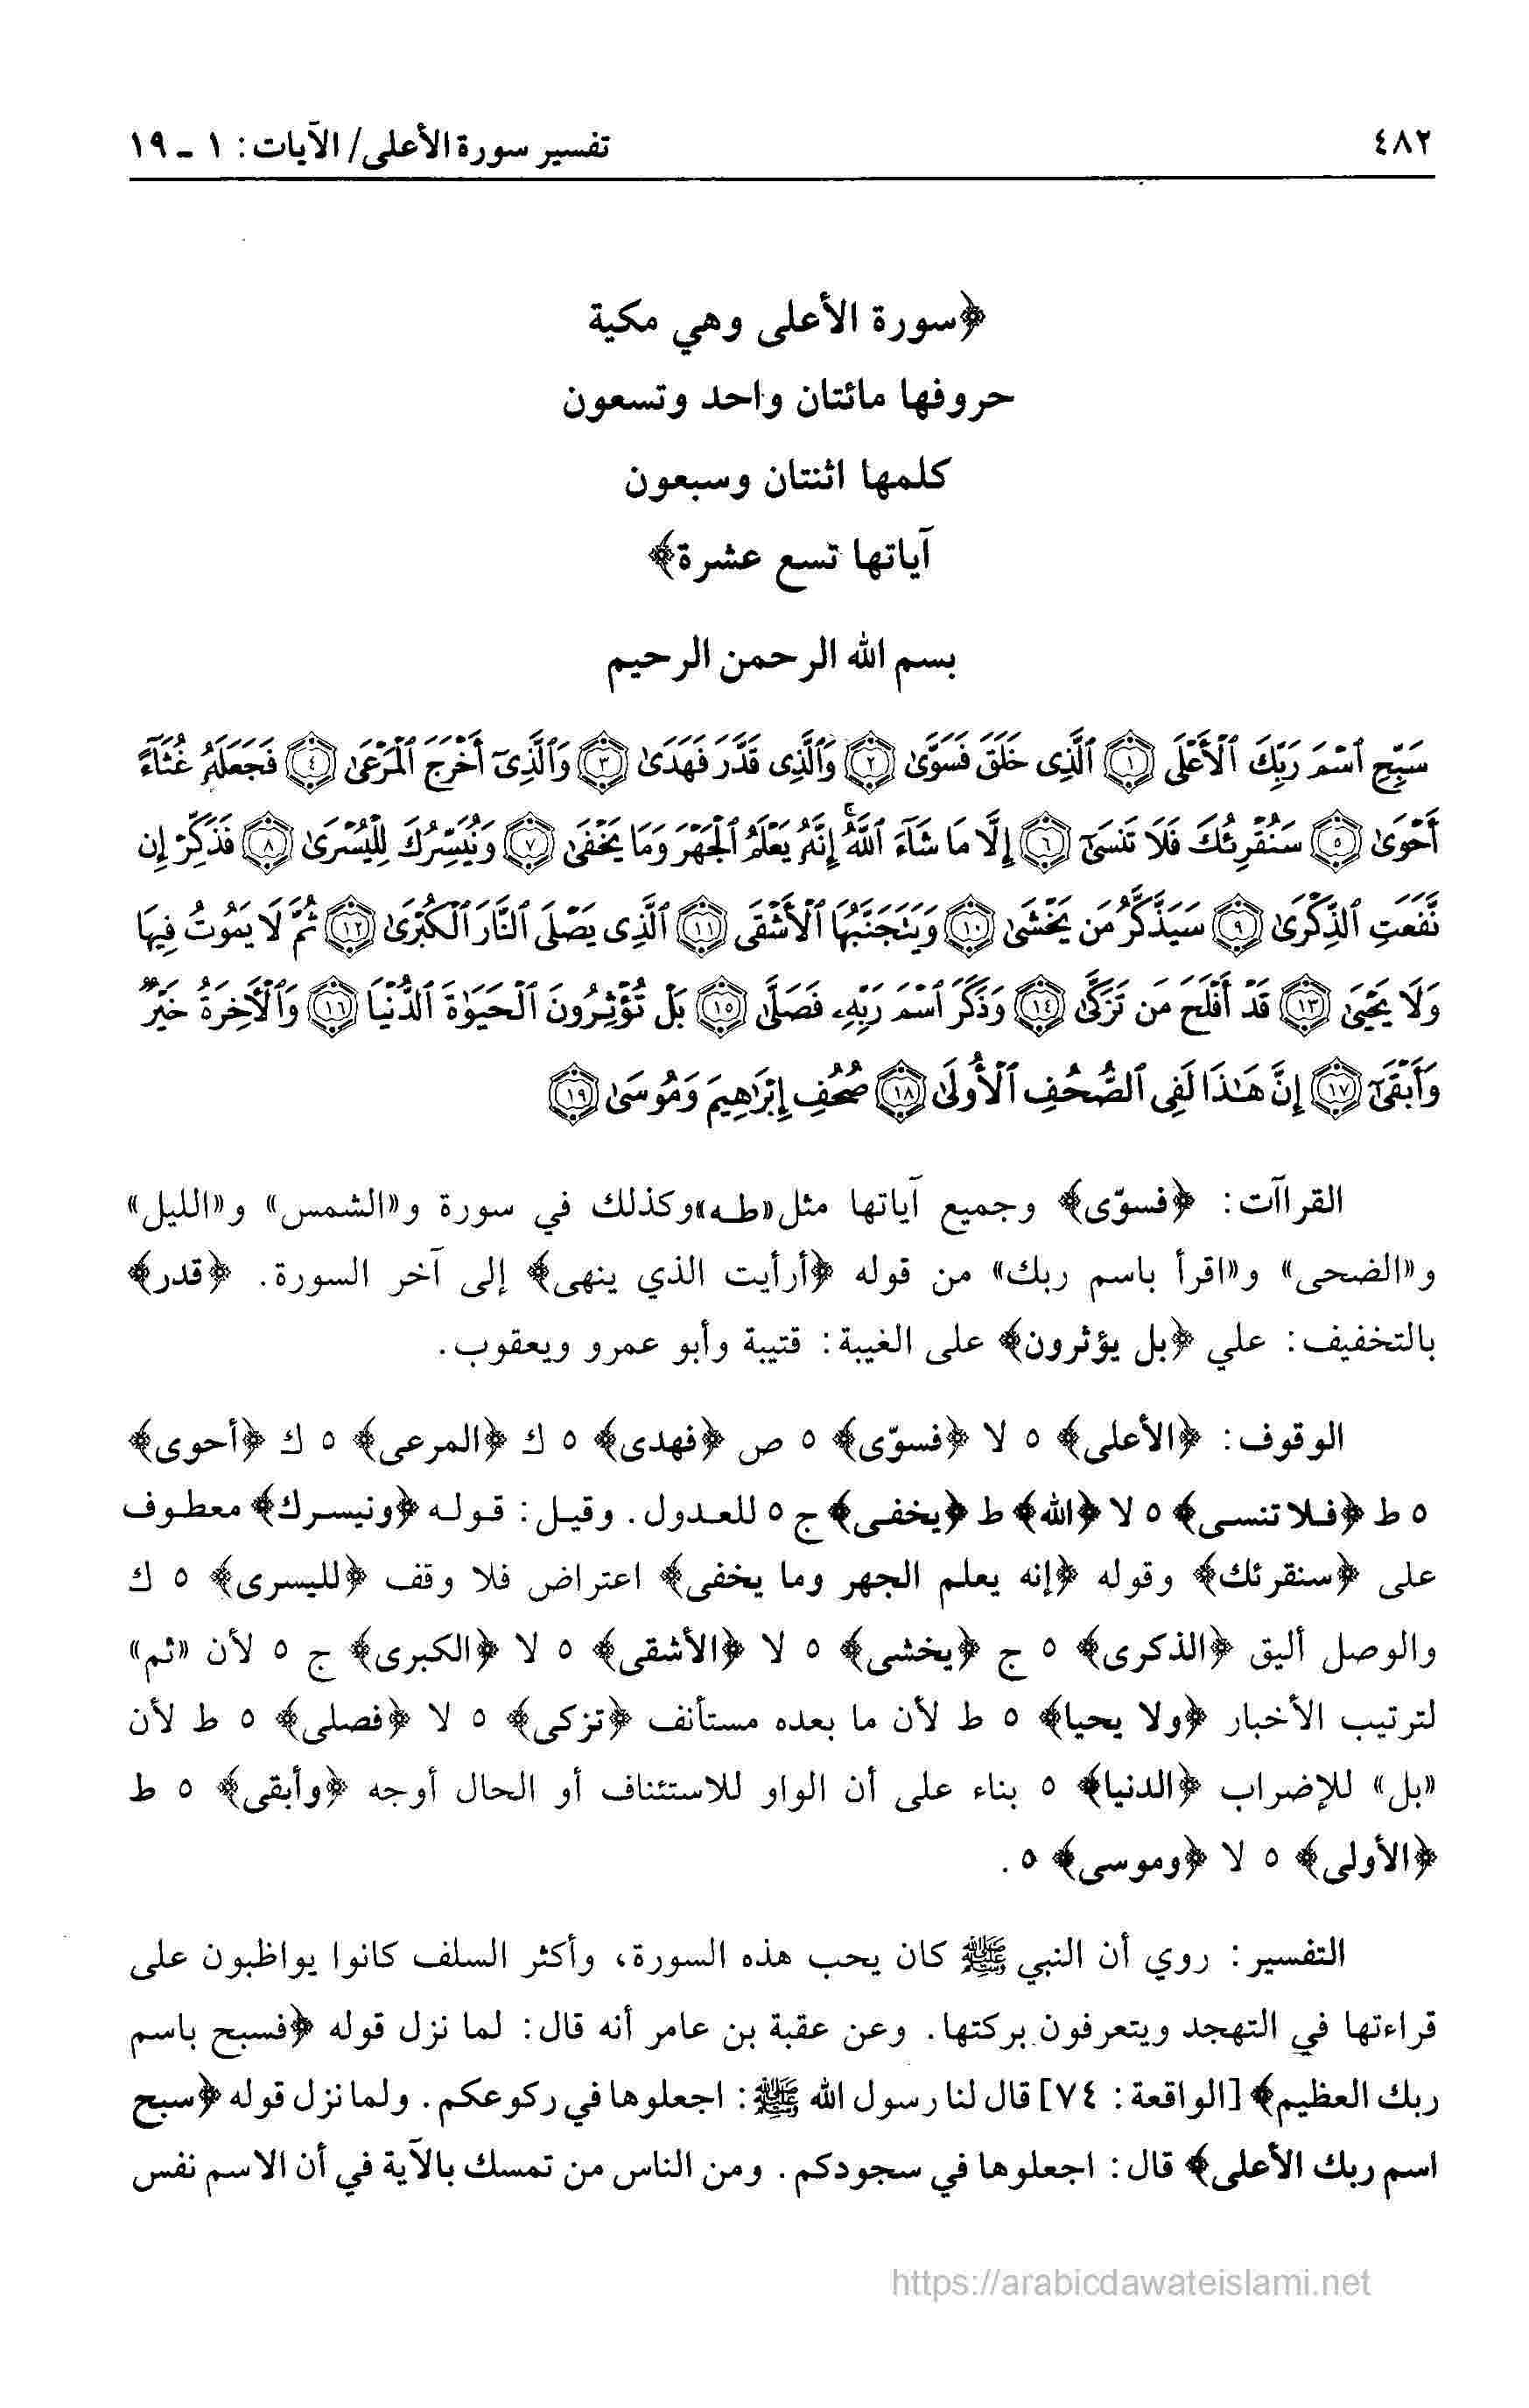 ٤٨٢ تفسير سورة الأعلى/ الآيات: ١ - ١٩
﴿سورة الأعلى وهي مكية
حروفها مائتان واحد وتسعون
كلمها اثنتان وسبعون
آياتها تسع عشرة﴾
بسم الله الرحمن الرحيم
سَبِّحِ ٱسْمَ رَبِّكَ ٱلْأَعْلَى ﴿١﴾ ٱلَّذِى خَلَقَ فَسَوَّىٰ ﴿٢﴾ وَٱلَّذِى قَدَّرَ فَهَدَىٰ ﴿٣﴾ وَٱلَّذِىٓ أَخْرَجَ ٱلْمَرْعَىٰ ﴿٤﴾ فَجَعَلَهُۥ غُثَآءً
أَحْوَىٰ ﴿٥﴾ سَنُقْرِئُكَ فَلَا تَنسَىٰٓ ﴿٦﴾ إِلَّا مَا شَآءَ ٱللَّهُۚ إِنَّهُۥ يَعْلَمُ ٱلْجَهْرَ وَمَا يَخْفَىٰ ﴿٧﴾ وَنُيَسِّرُكَ لِلْيُسْرَىٰ ﴿٨﴾ فَذَكِّرْ إِن
نَّفَعَتِ ٱلذِّكْرَىٰ ﴿٩﴾ سَيَذَّكَّرُ مَن يَخْشَىٰ ﴿١٠﴾ وَيَتَجَنَّبُهَا ٱلْأَشْقَى ﴿١١﴾ ٱلَّذِى يَصْلَى ٱلنَّارَ ٱلْكُبْرَىٰ ﴿١٢﴾ ثُمَّ لَا يَمُوتُ فِيهَا
وَلَا يَحْيَىٰ ﴿١٣﴾ قَدْ أَفْلَحَ مَن تَزَكَّىٰ ﴿١٤﴾ وَذَكَرَ ٱسْمَ رَبِّهِۦ فَصَلَّىٰ ﴿١٥﴾ بَلْ تُؤْثِرُونَ ٱلْحَيَوٰةَ ٱلدُّنْيَا ﴿١٦﴾ وَٱلْأَخِرَةُ خَيْرٌ
وَأَبْقَىٰٓ ﴿١٧﴾ إِنَّ هَٰذَا لَفِى ٱلصُّحُفِ ٱلْأُولَىٰ ﴿١٨﴾ صُحُفِ إِبْرَٰهِيمَ وَمُوسَىٰ ﴿١٩﴾
القراآت: ﴿فسوّى﴾ وجميع آياتها مثل«طه»وكذلك في سورة و«الشمس» و«الليل»
و«الضحى» و«اقرأ باسم ربك» من قوله ﴿أرأيت الذي ينهى﴾ إلى آخر السورة. ﴿قدر﴾
بالتخفيف: علي ﴿بل يؤثرون﴾ على الغيبة: قتيبة وأبو عمرو ويعقوب.
الوقوف: ﴿الأعلى﴾ ٥ لا ﴿فسوّى﴾ ٥ ص ﴿فهدى﴾ ٥ ك ﴿المرعى﴾ ٥ ك ﴿أحوى﴾
٥ ط ﴿فلا تنسى﴾ ٥ لا ﴿الله﴾ ط ﴿يخفى﴾ ج ٥ للعدول. وقيل: قوله ﴿ونيسرك﴾ معطوف
على ﴿سنقرئك﴾ وقوله ﴿إنه يعلم الجهر وما يخفى﴾ اعتراض فلا وقف ﴿لليسرى﴾ ٥ ك
والوصل أليق ﴿الذكرى﴾ ٥ ج ﴿يخشى﴾ ٥ لا ﴿الأشقى﴾ ٥ لا ﴿الكبرى﴾ ج ٥ لأن «ثم»
لترتيب الأخبار ﴿ولا يحيا﴾ ٥ ط لأن ما بعده مستأنف ﴿تزكى﴾ ٥ لا ﴿فصلى﴾ ٥ ط لأن
«بل» للإضراب ﴿الدنيا﴾ ٥ بناء على أن الواو للاستئناف أو الحال أوجه ﴿وأبقى﴾ ٥ ط
﴿الأولى﴾ ٥ لا ﴿وموسى﴾ ٥.
التفسير: روي أن النبي ﷺ كان يحب هذه السورة، وأكثر السلف كانوا يواظبون على
قراءتها في التهجد ويتعرفون بركتها. وعن عقبة بن عامر أنه قال: لما نزل قوله ﴿فسبح باسم
ربك العظيم﴾ [الواقعة: ٧٤] قال لنا رسول الله ﷺ: اجعلوها في ركوعكم. ولما نزل قوله ﴿سبح
اسم ربك الأعلى﴾ قال: اجعلوها في سجودكم. ومن الناس من تمسك بالآية في أن الاسم نفس
https://arabicdawateislami.net